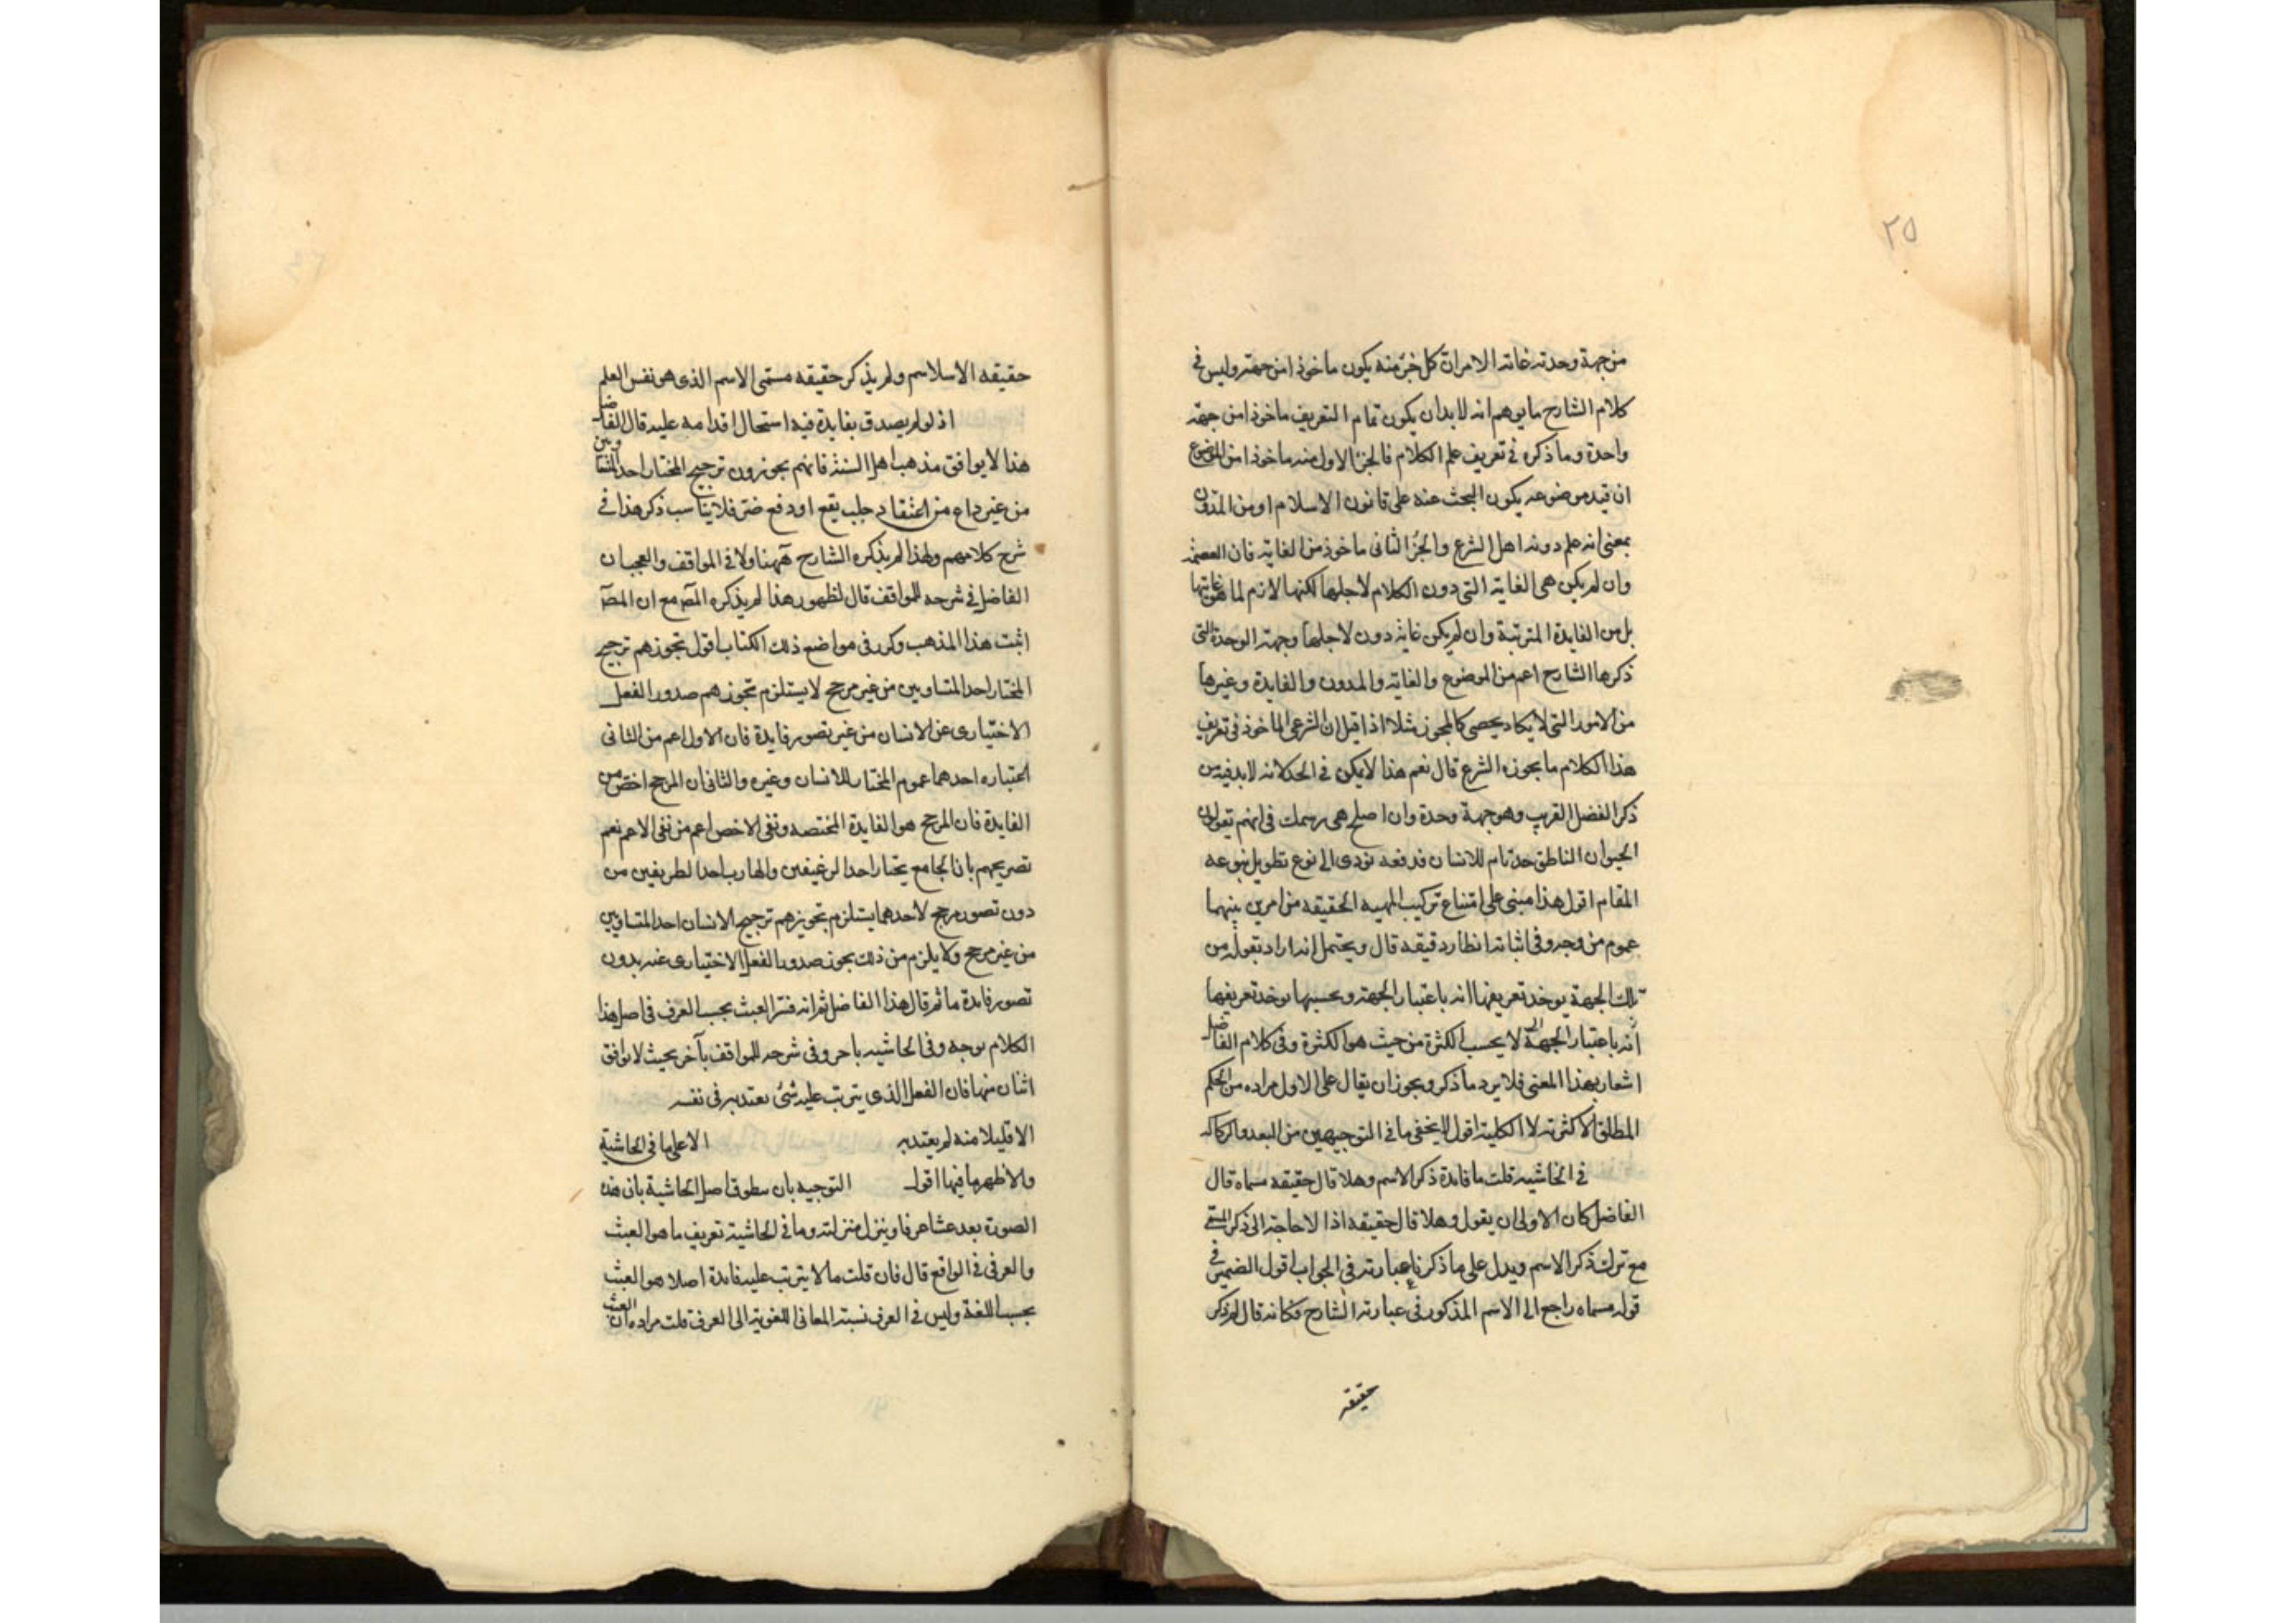 ٢٥
من جهة وحدته غاية الامر ان كل جزء منه يكون ماخوذا من جهة وليس في
كلام الشارح ما يوهم انه لا بد ان يكون تمام التعريف ماخوذا من جهة
واحدة وما ذكره في تعريف علم الكلام فالجزء الاول منه ماخوذ امن الموضوع
ان قيد موضوعه يكون البحث عنه على قانون الاسلام او من المدون
بمعنى انه علم دونه اهل الشرع والجزء الثاني ماخوذ من الغاية فان العصمة
وان لم يكن هي الغاية التي دون الكلام لاجلها لكنها لازم لما هو غايتها
بل من الفايدة المترتبة وان لم يكن غاية دون لاجلها وجهة الوحدة التي
ذكرها الشارح اعم من الموضوع والغاية والمدون والفايدة وغيرها
من الامور التي لا يكاد يحصى كالمجوز مثلا اذا قيل ان الشرعي الماخوذ في تعريف
هذا الكلام ما يجوزه الشرع قال نعم هذا لا يكن في الحد لانه لا بد فيه من
ذكر الفصل القريب وهو جهة وحدة وان اصلح هي رسمك في انهم تقولون
الحيوان الناطق حد تام للانسان فدفعه يؤدى الى نوع تطويل ينبو عنه
المقام اقول هذا مبنى على امتناع تركيب المهيه الحقيقه من امرين بينهما
عموم من وجه وفي اثباته انظار دقيقه قال ويحتمل انه اراد بقوله من
تلك الجهة يوخذ تعريفها انه باعتبار الجهة وبحسبها يوخذ تعريفها
انه باعتبار الجهة لا بحسب الكثرة من حيث هو الكثرة وفي كلام الفاضل
اشعار بهذا المعنى فلا يرد ما ذكر ويجوز ان يقال على الاول مراده من الحكم
المطلق الاكثرية لا الكلية اقول لا يخفى ما في التوجيهين من البعد والركاكه
في الحاشيه قلت ما فايدة ذكر الاسم وهلا قال حقيقه مسماه قال
الفاضل كان الاولى ان يقول وهلا قال حقيقه اذا لا حاجة الى ذكر المسمى
مع ترك ذكر الاسم ويدل على ما ذكرنا عبارته في الجواب اقول الضمير في
قوله مسماه راجع الى الاسم المذكور في عبارته الشارح فكانه قال لم يذكر
حقيقه
حقيقه الاسلاسم ولم يذكر حقيقه مسمى الاسم الذى هو نفس العلم
اذ لو لم يصدق بفايدة فيه استحال اقدامه عليه قال الفاضل
هذا لا يوافق مذهب اهل السنة فانهم يجوزون ترجيح المختار احد المتساويين
من غير داع من اعتقاد جلب نفع او دفع ضر فلا يناسب ذكر هذا في
شرح كلامهم ولهذا لم يذكره الشارح ههنا ولا في المواقف والعجب ان
الفاضل في شرحه للمواقف قال لظهور هذا لم يذكره المص مع ان المص
اثبت هذا المذهب وكرر في مواضع ذلك الكتاب اقول تجوزهم ترجيح
المختار احد المتساويين من غير مرجح لا يستلزم تجوزهم صدور الفعل
الاختيارى عن الانسان من غير تصور فايدة فان الاول اعم من الثانى
اعتباره احدهما عموم المختار للانسان وغيره والثانى ان المرجح اخص من
الفايدة فان المرجح هو الفايدة المختصه ونفى الاخص اعم من نفى الاعم نعم
تصريحهم بان الجامع يختار احد الرغيفين والهارب احد الطريقين من
دون تصور مرجح لاحدهما يستلزم تجويزهم ترجيح الانسان احد المتساويين
من غير مرجح ولا يلزم من ذلك يجوز صدور الفعل الاختيارى عنه بدون
تصور فايدة ما ثم قال هذا الفاضل ثم انه فسر العبث بحسب العرف في اصل هذا
الكلام بوجه وفي الحاشيه باخر وفى شرحه للمواقف بآخر بحيث لا يوافق
اثنان منها فان الفعل الذى يترتب عليه شئ يعتد به في نفسه
الا قليلا منه لم يعتد به الا على ما في الحاشية
والاظهر ما فيها اقول التوجيه بان اصل الحاشية بان هذه
الصورة بعد عبثا عرفا وينزل منزلته وما في الحاشية تعريف ما هو العبث
والعرفى في الواقع قال فان قلت ما لا يترتب عليه فايدة اصلا هو العبث
بحسب اللغة وليس في العرف نسبته المعانى اللغوية الى العرف قلت مراده ان العبث